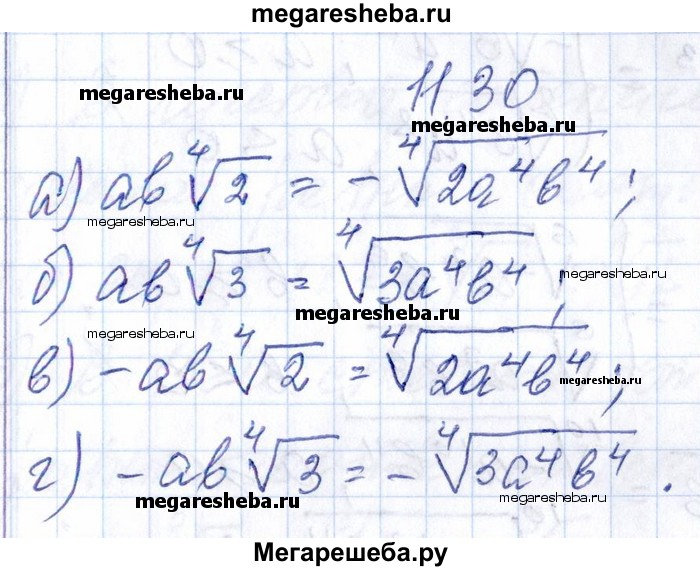 megaresheba.ru
megaresheba.ru
11 30
megaresheba.ru
а) ab ∜2 = - ∜2a⁴b⁴ ;
megaresheba.ru
б) ab ∜3 = ∜3a⁴b⁴ ;
megaresheba.ru
megaresheba.ru
megaresheba.ru
в) -ab ∜2 = ∜2a⁴b⁴ ;
megaresheba.ru
г) -ab ∜3 = - ∜3a⁴b⁴ .
megaresheba.ru
megaresheba.ru
Мегарешеба.ру